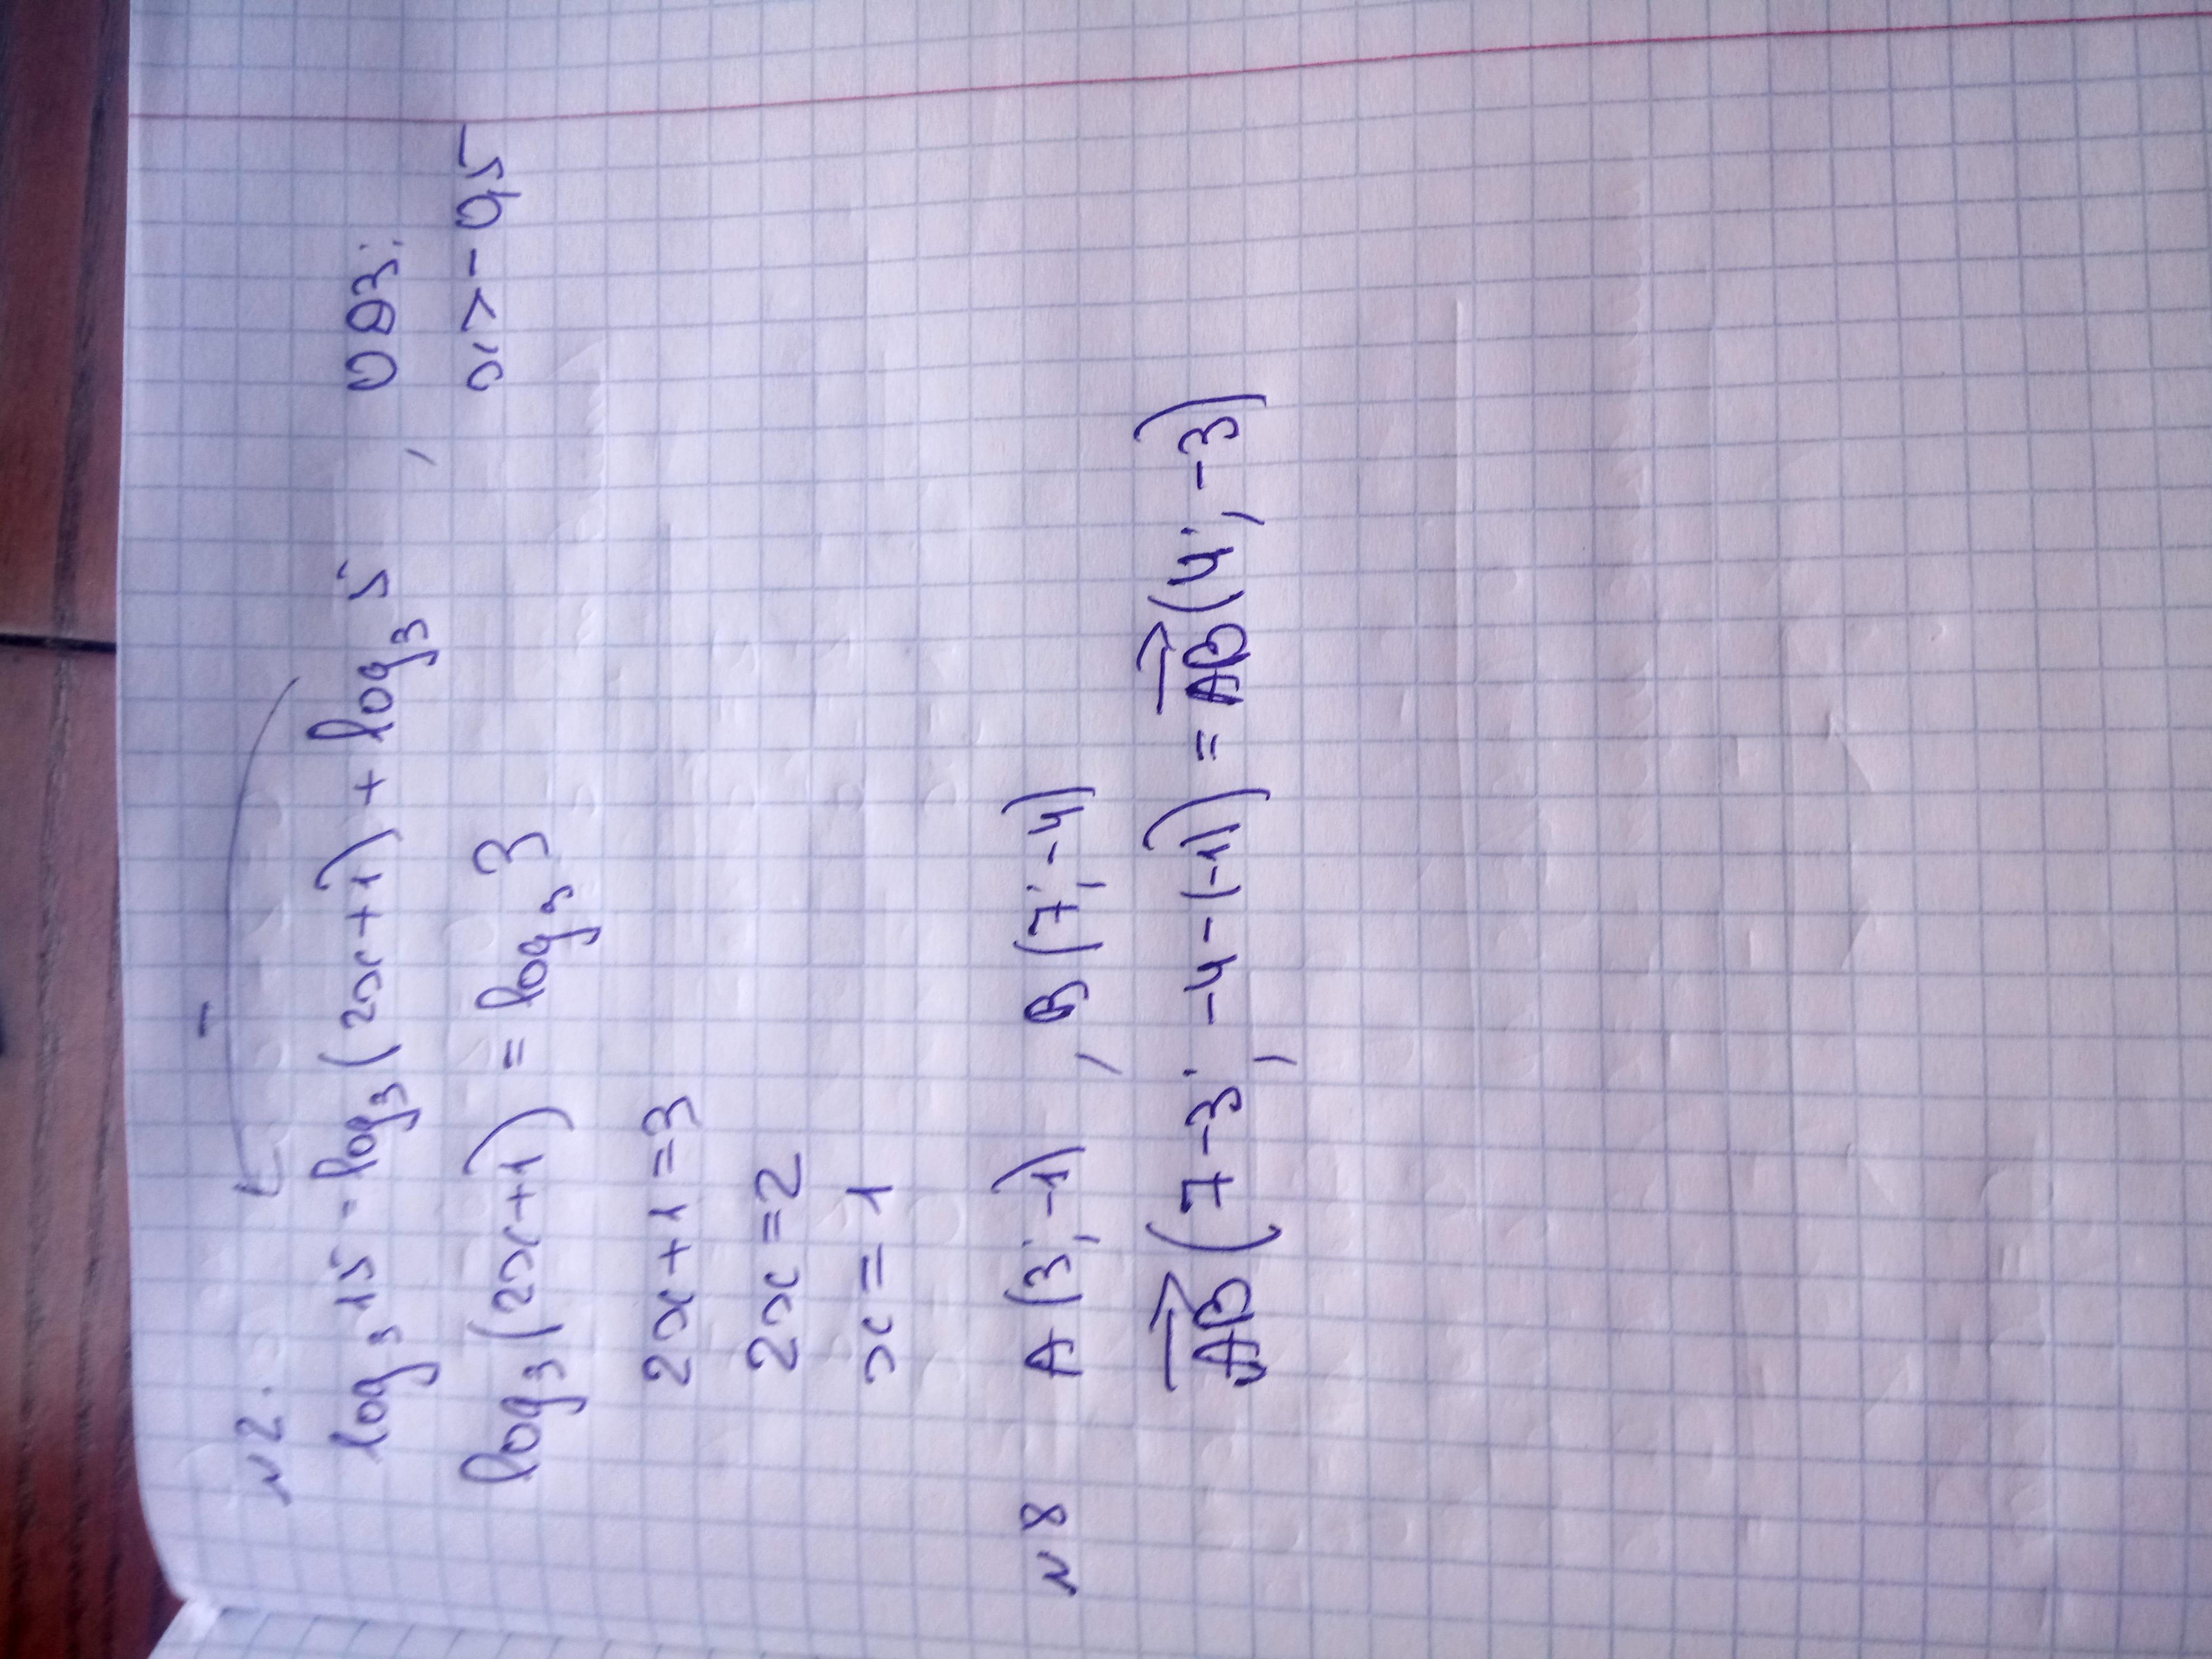 №2.
log₃15 = log₃(2x+1) + log₃5, ОДЗ:
log₃(2x+1) = log₃3 x>-0,5
2x+1=3
2x=2
x=1
№8 A(3;-1), B(7;-4)
AB(7-3; -4-(-1)) = AB(4;-3)